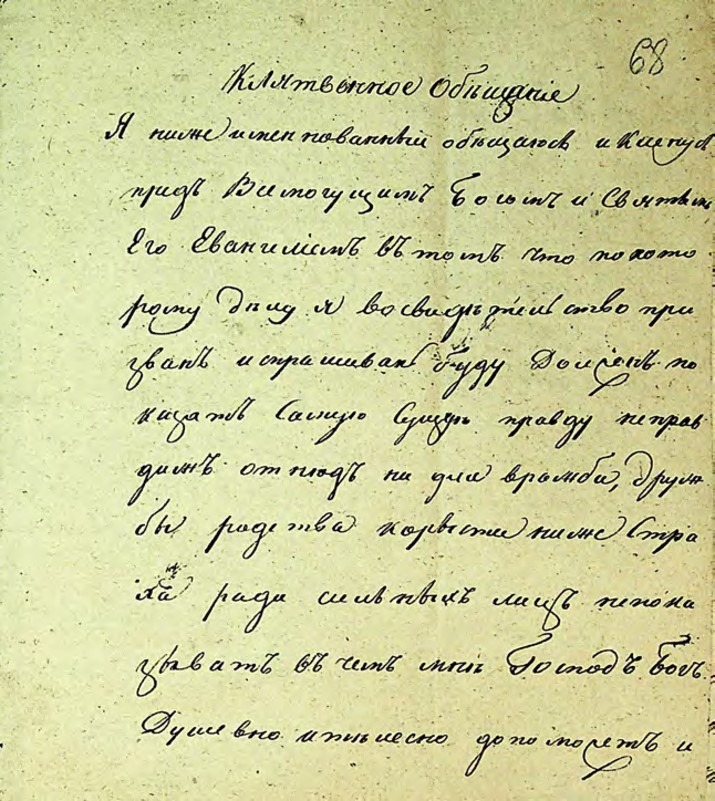 68
Клятвенное Обѣщаніе
Я нижеименнованный обѣщаюсь и клянусь
предъ Всемогущимъ Богомъ и Святымъ
Его Евангеліемъ въ томъ что по кото
рому дѣлу я во свидѣтельство при
званъ и спрашиванъ буду Долженъ по
казать Самую Сущую правду неправ
ды отнюдъ ни для вражбы, друж
бы родства корысти ниже Стра
ха ради сильныхъ лицъ непока
зывать въ чемъ мнѣ Господь Богъ
Душевно и тѣлесно да поможетъ и